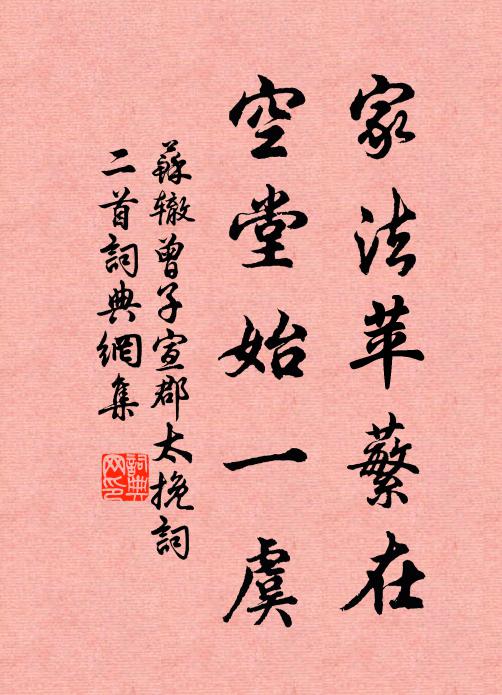 家法苹蘩在
空堂始一虞
蘇辙曾子宣郡太挽詞
二首詞典網集
詞典
网印